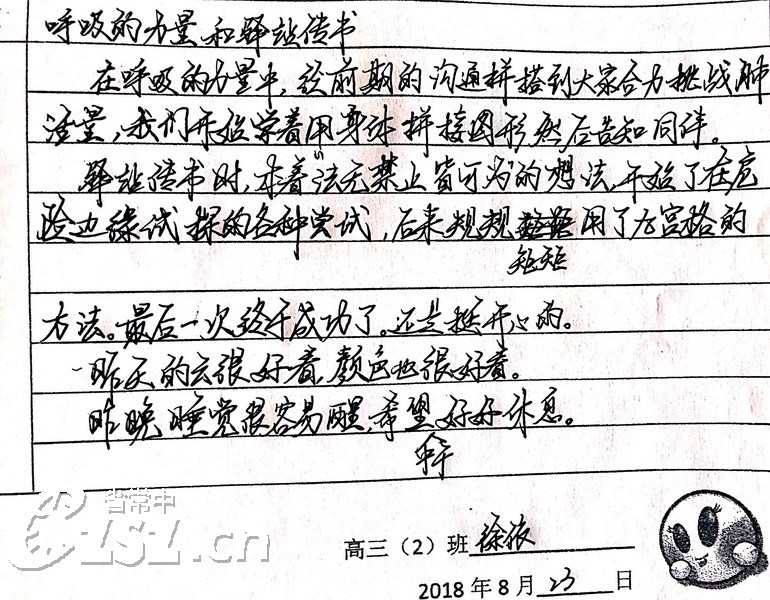 呼吸的力量和驿站传书
在呼吸的力量中，经前期的沟通拼搭到大家合力挑战肺
活量，我们开始学着用身体拼接图形然后告知同伴。
驿站传书时，本着“法无禁止皆可为”的想法，开始了在危
险边缘试探的各种尝试，后来规规 用了九宫格的
矩矩
方法。最后一次终于成功了。还是挺开心的。
昨天的云很好看，颜色也很好看。
昨晚睡觉很容易醒，希望好好休息。
省常中
CZSLZ.cn
高三（2）班 徐依
2018年8月23日